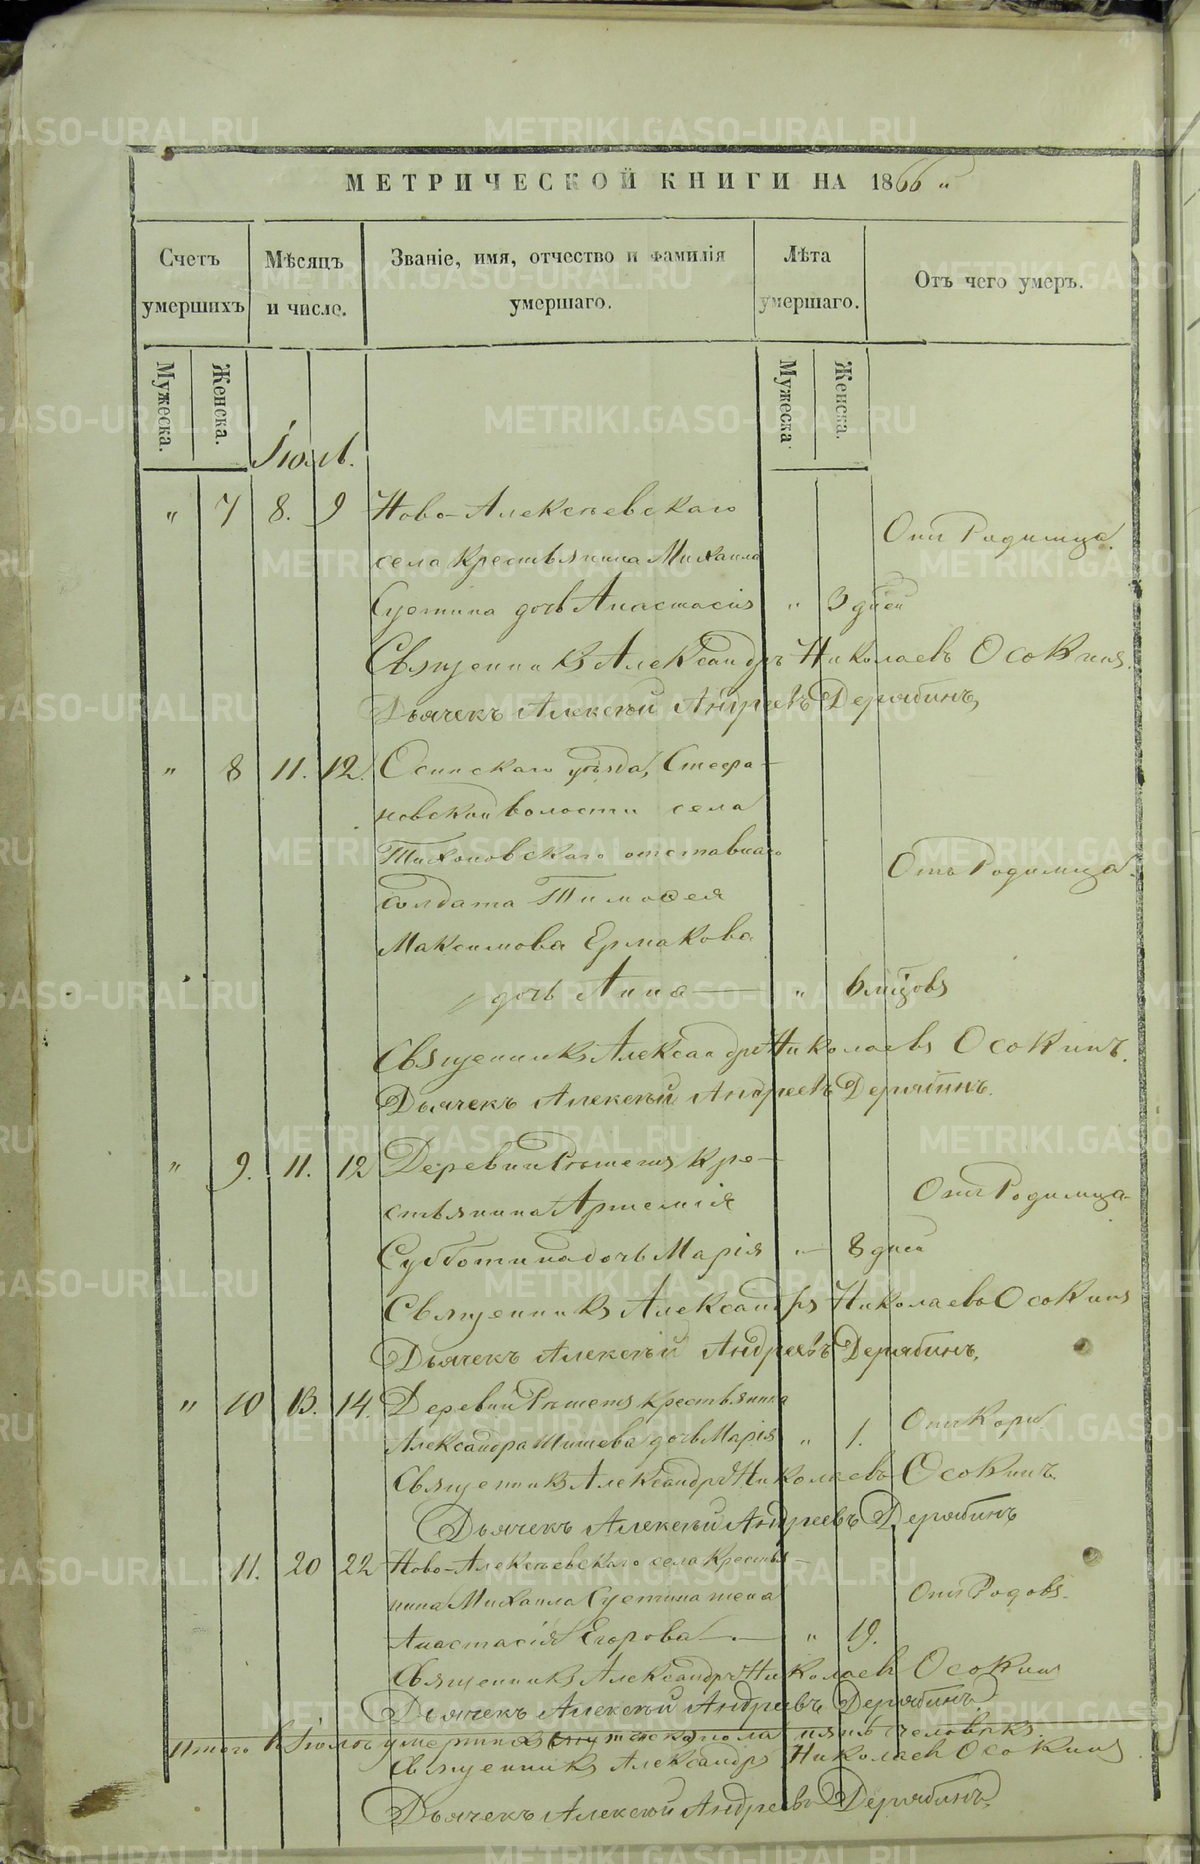 МЕТРИЧЕСКОЙ КНИГИ НА 1866 "
Счетъ умершихъ
Мѣсяцъ и число.
Званіе, имя, отчество и фамилія умершаго.
Лѣта умершаго.
Отъ чего умеръ.
Мужеска. Женска.
Мужеска Женска.
Іюль.
" 7 8. 9 Ново-Алексѣевскаго
села крестьянина Михаила
Отъ Родимца.
Суетина дочь Анастасія " 3 дней
Священникъ Александръ Николаевъ Осокинъ.
Дьячекъ Алексѣй Андреевъ Дерябинъ
" 8 11. 12. Осинскаго уѣзда, Стефа-
новской волости села
Тихоновскаго отставнаго
Отъ Родимца.
солдата Тимоѳея
Максимова Ермакова
дочь Анна — " 6 мѣсцовъ
Священникъ Александръ Николаевъ Осокинъ.
Дьячекъ Алексѣй Андреевъ Дерябинъ.
" 9. 11. 12 Деревни Рѣшетъ кре-
стьянина Артемія
Отъ Родимца
Субботина дочь Марія " 8 дней
Священникъ Александръ Николаевъ Осокинъ
Дьячекъ Алексѣй Андреевъ Дерябинъ.
" 10 13. 14. Деревни Рѣшетъ крестьянина
Александра дочь Марія " 1. Отъ Кори
Священникъ Александръ Николаевъ Осокинъ.
Дьячекъ Алексѣй Андреевъ Дерябинъ
11. 20 22 Ново-Алексѣевскаго села крестья-
нина Михаила Суетина жена
Отъ Родовъ.
Анастасія Егорова — " 19.
Священникъ Александръ Николаевъ Осокинъ
Дьячекъ Алексѣй Андреевъ Дерябинъ
Итого въ Іюлѣ умершихъ пола пять человѣкъ.
Священникъ Александръ Николаевъ Осокинъ
Дьячекъ Алексѣй Андреевъ Дерябинъ.
METRIKI.GASO-URAL.RU